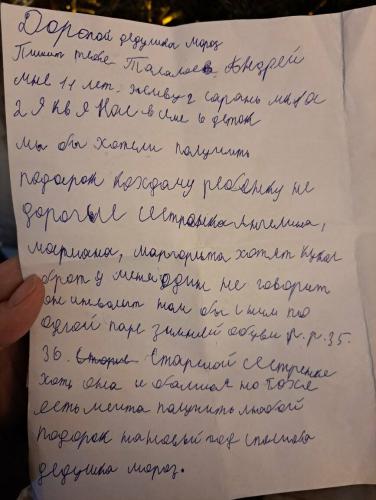 Дорогой дедушка мороз
Пишит тебе Тагалаев Андрей
мне 11 лет. живу г сарань
2 я кв я Нас в семе 6 деток
мы бы хотели палучить
падарок каждаму ребенку не
дорогые сестренка Ангелина,
мариана, маргорита хотят кукол
брат у меня один не гаворит
он инвалит там бы с ним по
одной паре зимней обуви р.р. 35.
36. старшой сестренке
хоть она и обалшая но тоже
есть мечта палучить любой
падарок на новый год спасиба
дедушка мороз.